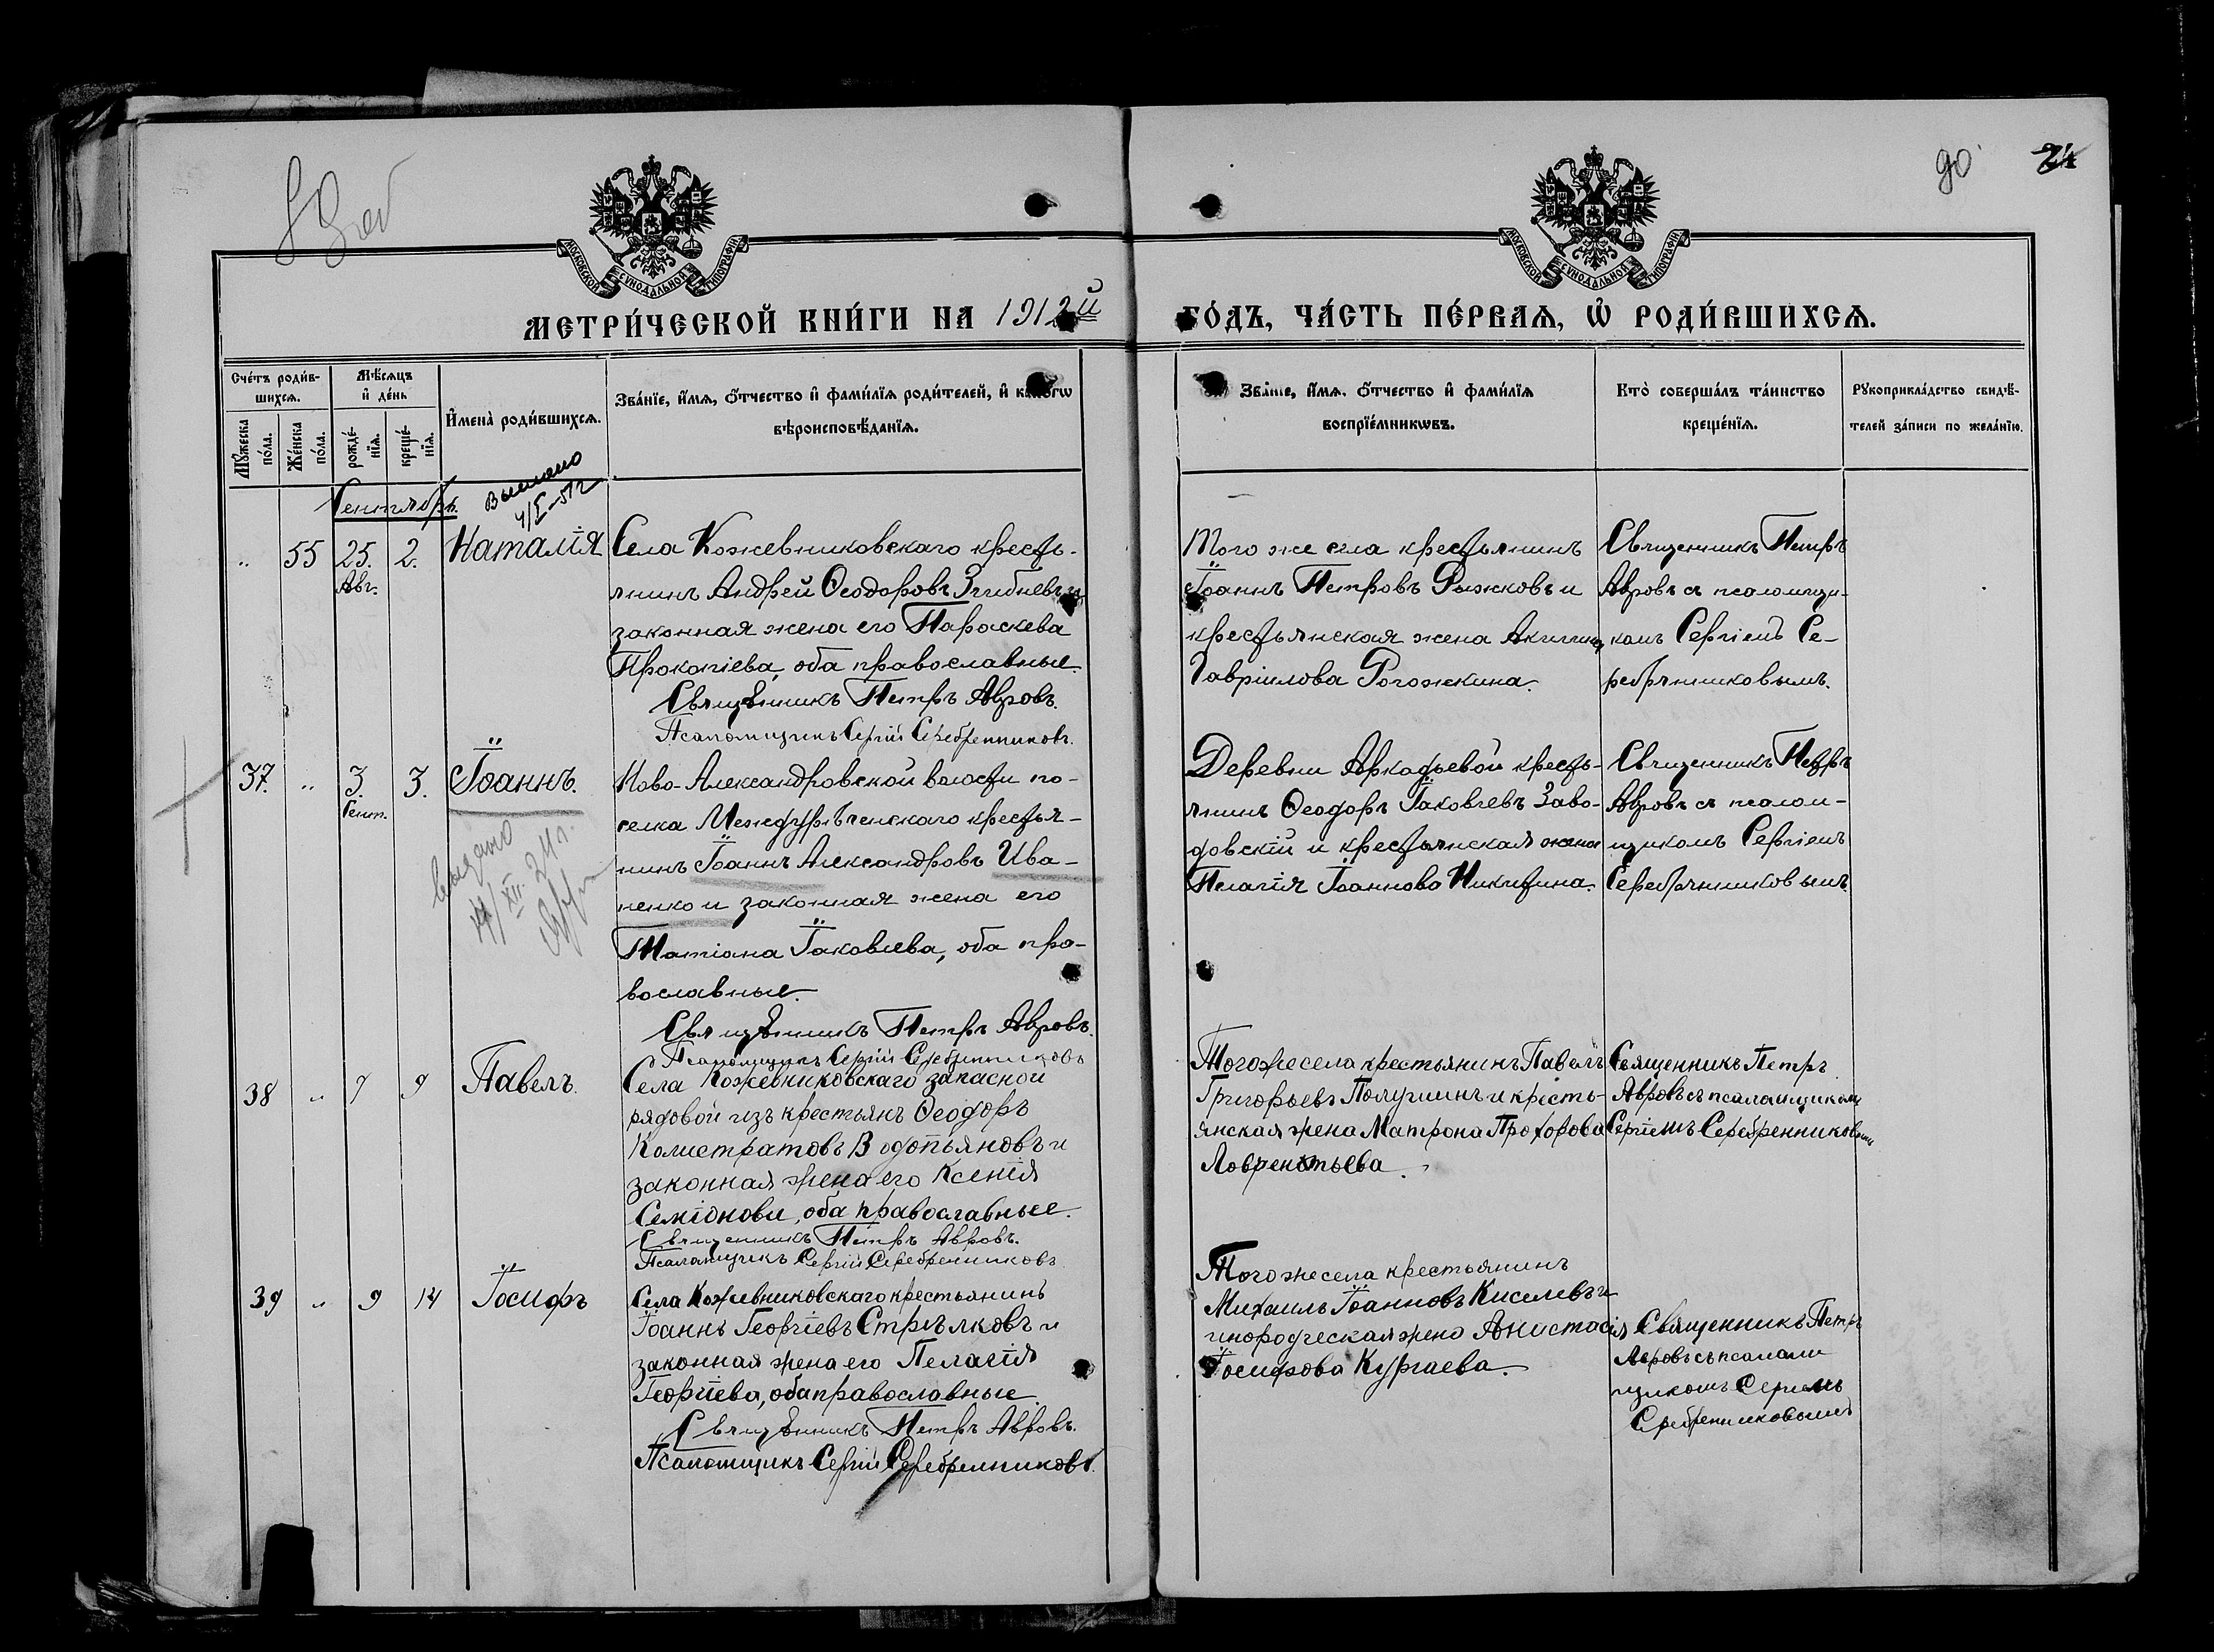 90
24
МОСКОВСКОЙ СѴНОДАЛЬНОЙ ТИПОГРАФІИ
МОСКОВСКОЙ СѴНОДАЛЬНОЙ ТИПОГРАФІИ
МЕТРИ́ЧЕСКОЙ КНИ́ГИ НА 1912й ГО́ДЪ, ЧА́СТЬ ПЕ́РВАѦ, Ѡ҆ РОДИ́ВШИХСѦ.
Сче́тъ роди́в-
шихсѧ.
Мꙋ́жеска по́ла.
Же́нска по́ла.
Мѣ́сѧцъ
и҆ де́нь
рожде́-
нїѧ.
креще́-
нїѧ.
И҆мена̀ роди́вшихсѧ.
Зва́нїе, и҆́мѧ, ѻ҆́тчество и҆ фами́лїѧ роди́телей, и҆ како́гѡ
вѣроисповѣ́данїѧ.
Зва́нїе, и҆́мѧ, ѻ҆́тчество и҆ фами́лїѧ
воспрїе́мникѡвъ.
Кто̀ соверша́лъ та́инство
креще́нїѧ.
Рꙋкоприкла́дство свидѣ́-
телей за́писи по жела́нїю.
Сентябрь.
55 25. Авг. 2. Наталія
Села Кожевниковскаго кресть-
янинъ Андрей Ѳеодоровъ и
законная жена его Параскева
Прокопіева, оба православные.
Священникъ Петръ Авровъ.
Псаломщикъ Сергій Серебренниковъ.
Того же села крестьянинъ
Іоаннъ Петровъ Рыжковъ и
крестьянская жена Акилина
Гавріилова Рогожкина.
Священникъ Петръ
Авровъ съ псаломщи-
комъ Сергіемъ Се-
ребрянниковымъ.
37. 3. Сент. 3. Іоаннъ.
выдано
Ново-Александровской волости по-
селка Междурѣченскаго крестья-
нинъ Іоаннъ Александровъ Ива-
ненко и законная жена его
Татіана Іаковлева, оба пра-
вославные.
Священникъ Петръ Авровъ.
Псаломщикъ Сергій Серебренниковъ
Деревни Аркадьевой кресть-
янинъ Ѳеодоръ Іаковлевъ Заво-
довскій и крестьянская жена
Пелагія Іоаннова Никитина.
Священникъ Петръ
Авровъ съ псалом-
щикомъ Сергіемъ
Серебрянниковымъ.
38 7 9 Павелъ.
Села Кожевниковскаго запасной
рядовой изъ крестьянъ Ѳеодоръ
Калистратовъ Водопьяновъ и
законная жена его Ксенія
Семіонова, оба православные.
Священникъ Петръ Авровъ.
Псаломщикъ Сергій Серебренниковъ
Того же села крестьянинъ Павелъ
Григорьевъ Полушинъ и кресть-
янская жена Матрона Прохорова
Лаврентьева.
Священникъ Петръ
Авровъ съ псаломщикомъ
Сергіемъ Серебренниковымъ
39 9 14 Іосифъ
Села Кожевниковскаго крестьянинъ
Іоаннъ Георгіевъ Стрѣлковъ и
законная жена его Пелагія
Георгіева, оба православные
Священникъ Петръ Авровъ.
Псаломщикъ Сергій Серебренниковъ.
Того же села крестьянинъ
Михаилъ Іоанновъ Киселевъ и
инородческая жена Анастасія
Іосифова Кургаева.
Священникъ Петръ
Авровъ съ псалом
щикомъ Сергіемъ
Серебренниковымъ